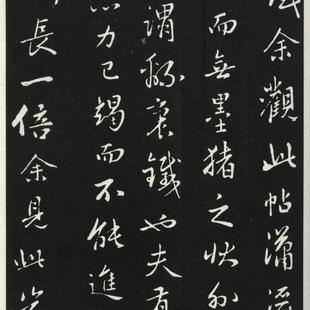 余觀此帖瀟
而無墨猪之状外
謂綿裹鐵也夫有
力已竭而不能進
長一倍余見此